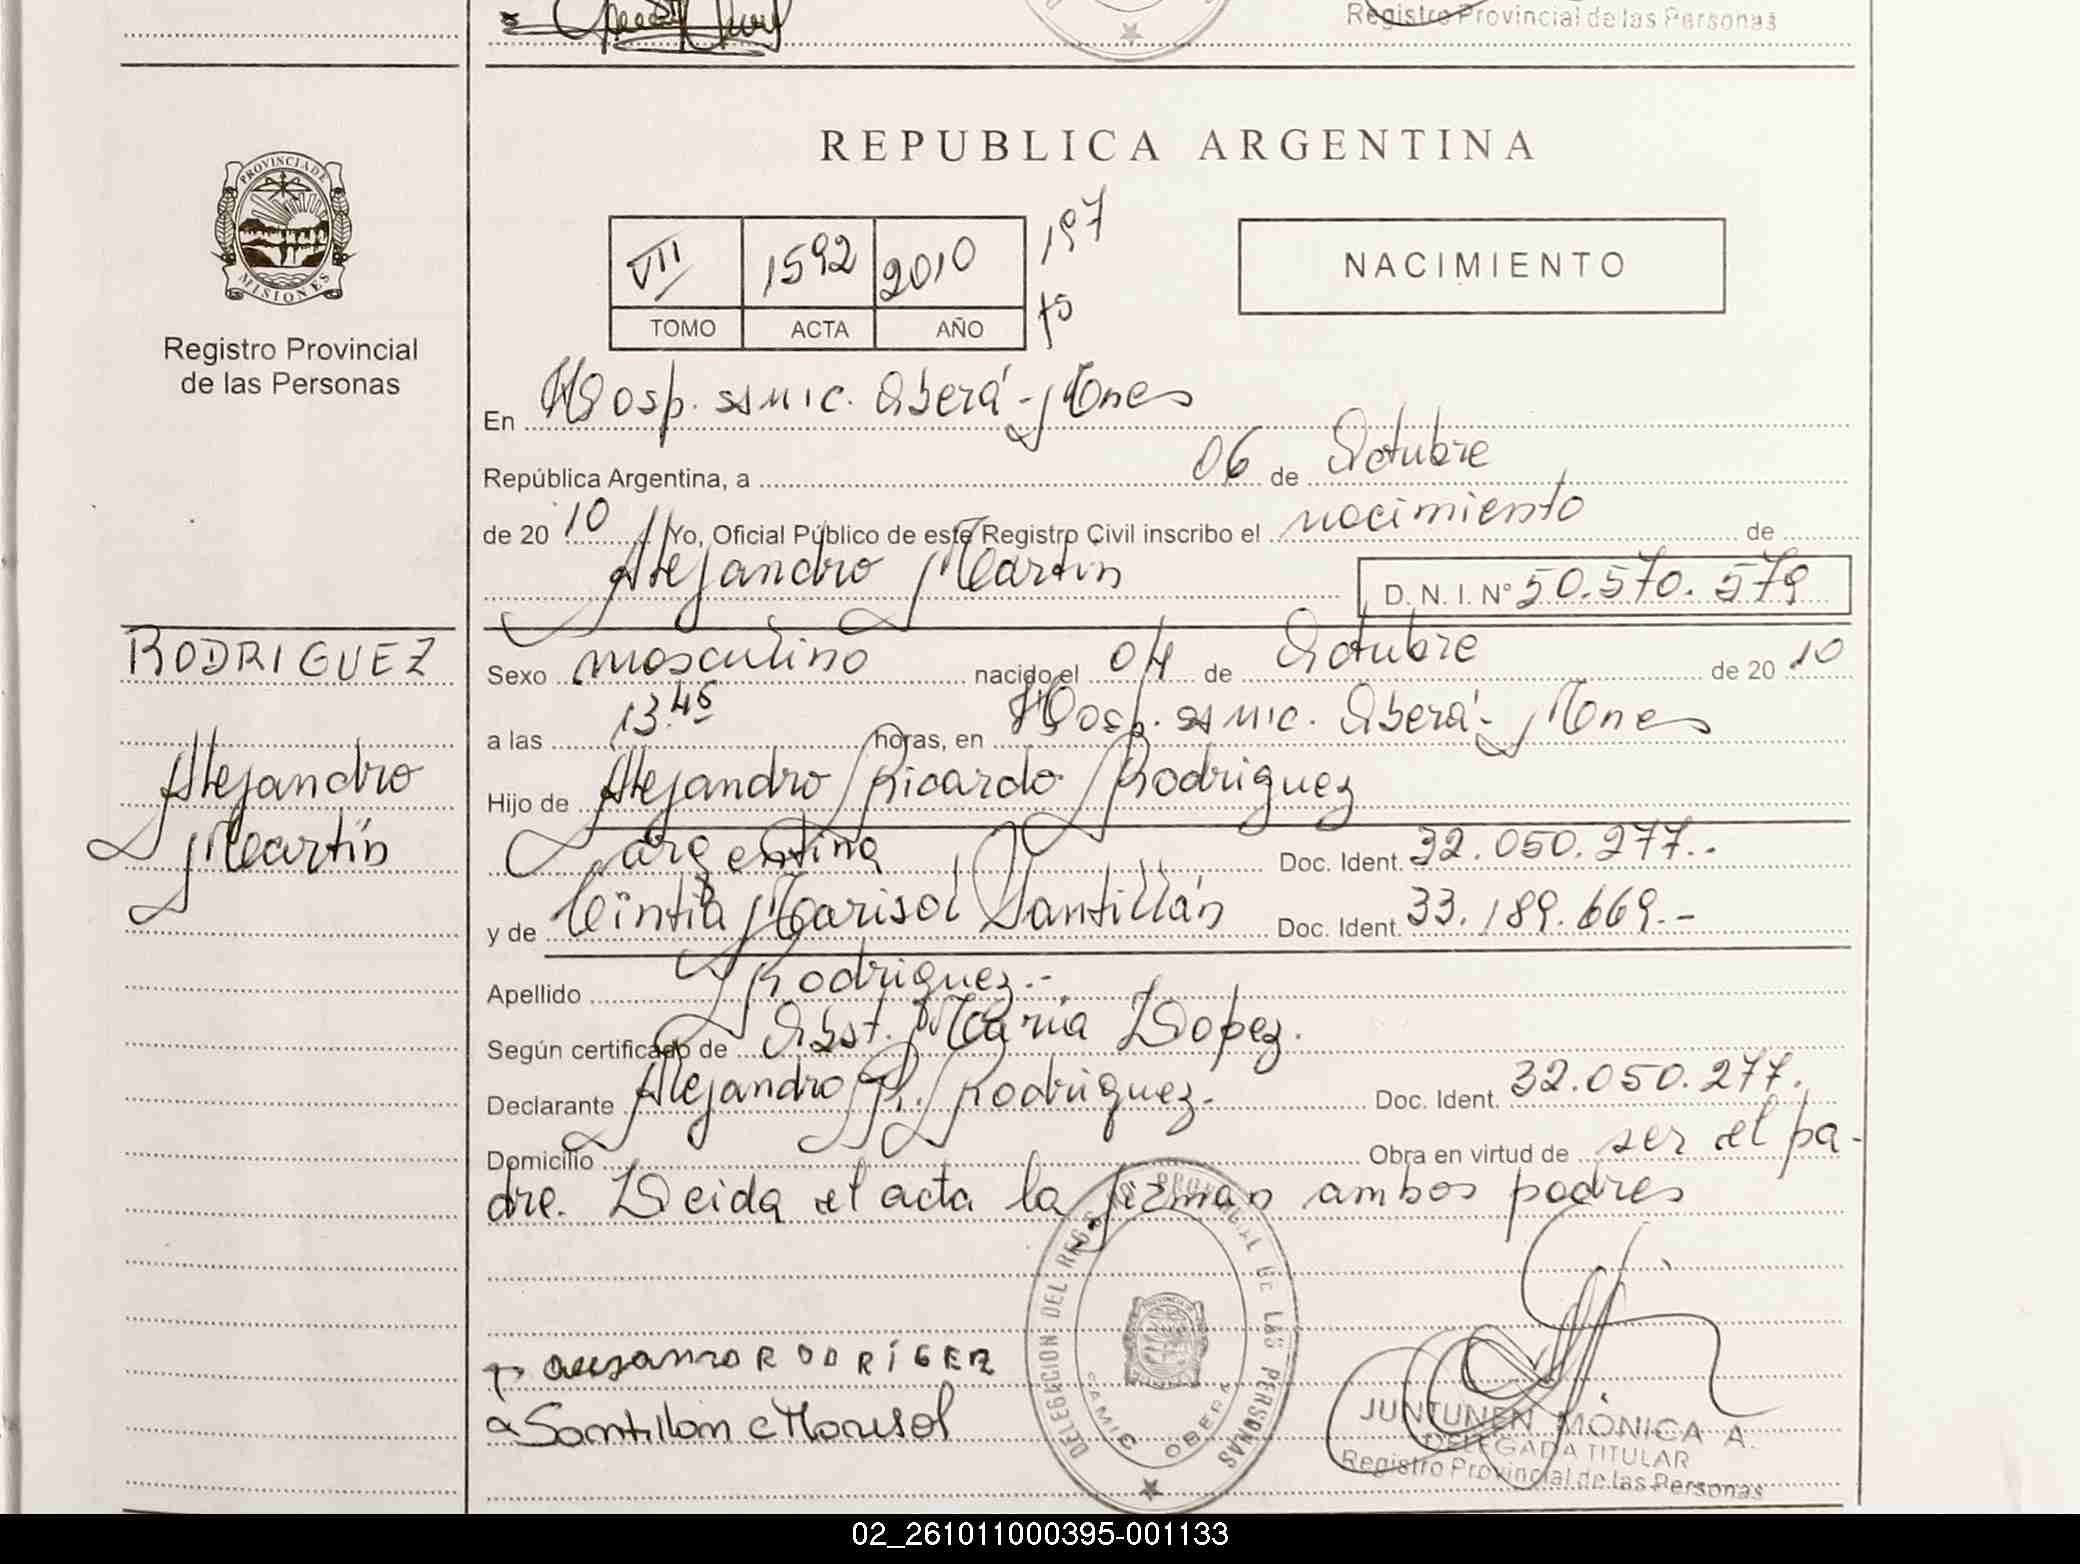 Registro Provincial de las Personas
REPUBLICA ARGENTINA
PROVINCIA DE
MISIONES
Registro Provincial
de las Personas
VII 1592 2010 197
TOMO ACTA AÑO
NACIMIENTO
En Hosp. SAMIC. Oberá - Mnes
República Argentina, a 06 de Octubre
de 20 10 Yo, Oficial Público de este Registro Civil inscribo el nacimiento de
Alejandro Martín D. N. I. N° 50.570.579
RODRIGUEZ
Alejandro
Martín
Sexo masculino nacido el 04 de Octubre de 20 10
a las 13.45 horas, en Hosp. SAMIC. Oberá - Mnes
Hijo de Alejandro Ricardo Rodriguez
argentina Doc. Ident. 32.050.277.-
y de Cintia Marisol Santillán Doc. Ident. 33.189.669.-
Apellido Rodriguez.-
Según certificado de Obst. María Lopez.
Declarante Alejandro R. Rodriguez.- Doc. Ident. 32.050.277.
Domicilio Obra en virtud de ser el pa-
dre. Leida el acta la firman ambos padres
RODRÍGEZ
Santillan Marisol
DELEGACION DEL REGISTRO PROVINCIAL DE LAS PERSONAS
SAMIC OBERA
JUNTUNEN MÓNICA A.
DELEGADA TITULAR
Registro Provincial de las Personas
02_261011000395-001133